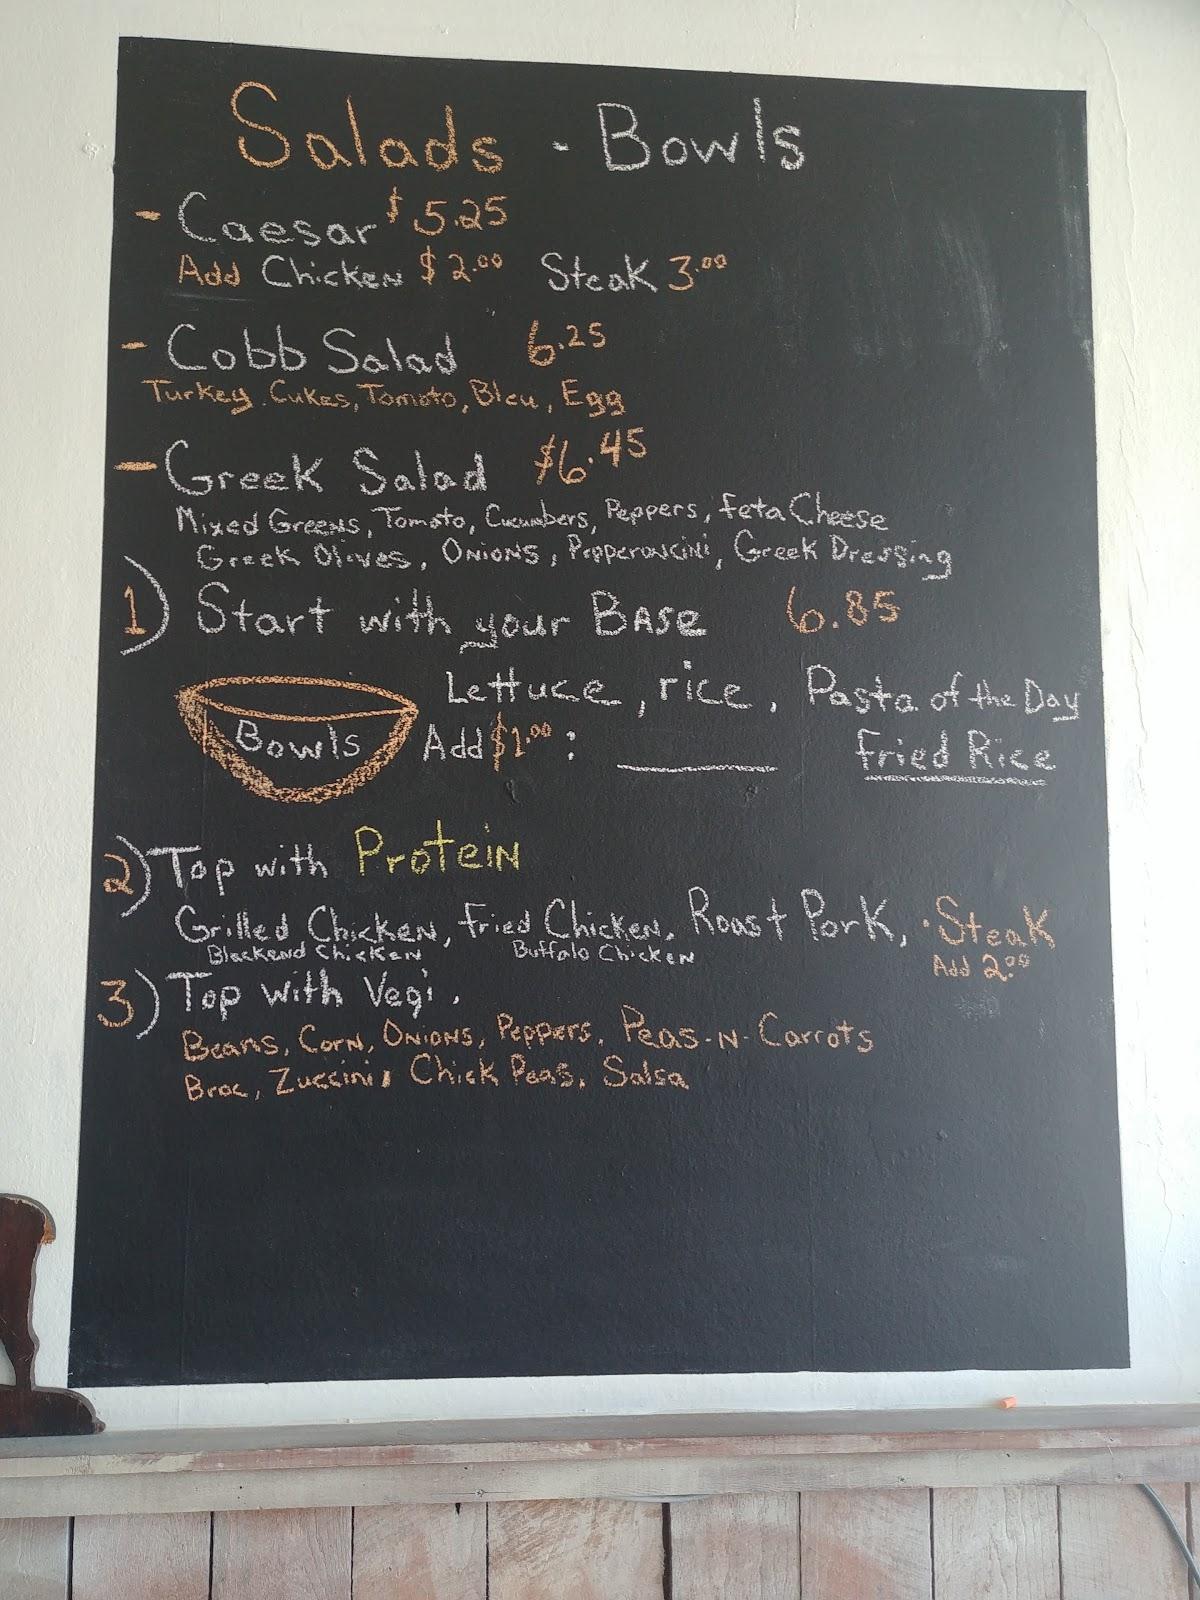 Salads - Bowls
- Caesar $5.25
Add Chicken $2.00 Steak 3.00
- Cobb Salad 6.25
Turkey, Cukes, Tomato, Bleu, Egg
- Greek Salad $6.45
Mixed Greens, Tomato, Cucumbers, Peppers, Feta Cheese
Greek Olives, Onions, Pepperoncini, Greek Dressing
1) Start with your Base 6.85
Lettuce, rice, Pasta of the Day
Bowls Add $1.00: ________ Fried Rice
2) Top with Protein
Grilled Chicken, Fried Chicken, Roast Pork, Steak
Blackend Chicken Buffalo Chicken Add 2.00
3) Top with Vegi.
Beans, Corn, Onions, Peppers, Peas-N-Carrots
Broc, Zuccini, Chick Peas, Salsa